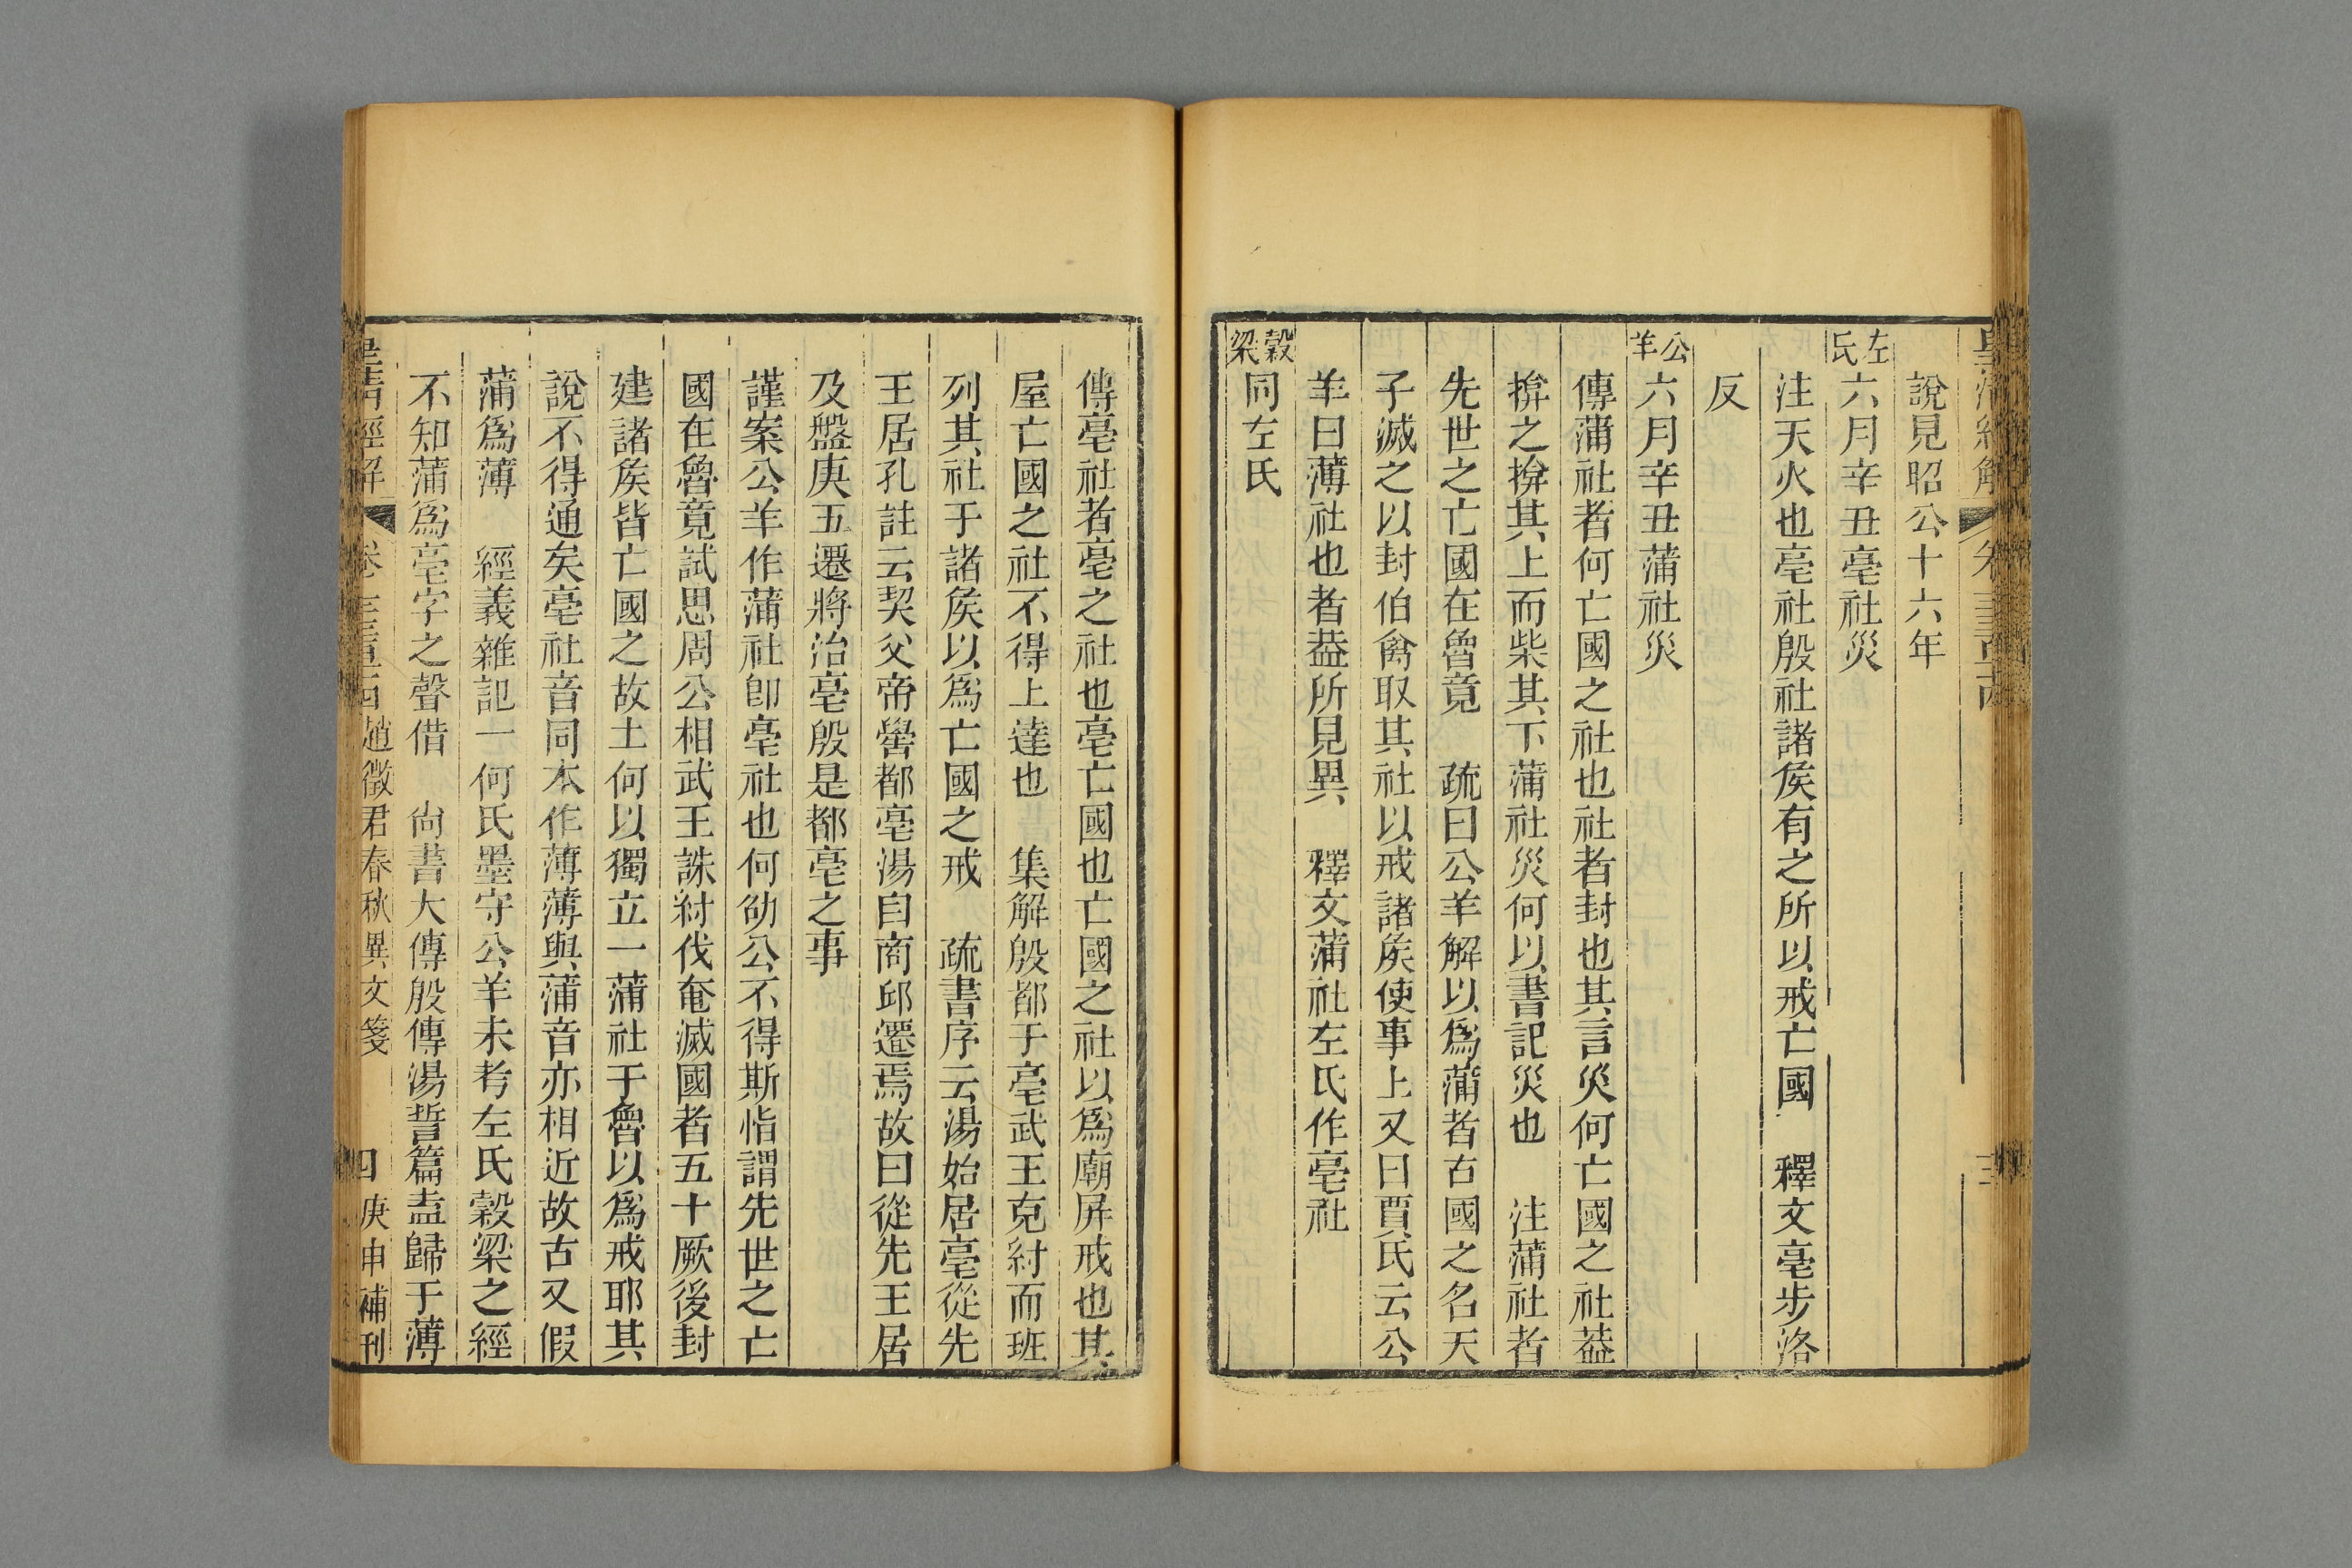 說見昭公十六年
左氏六月辛丑亳社災
注天火也亳社殷社諸矦有之所以戒亡國　釋文亳步洛
反
公羊六月辛丑蒲社災
傳蒲社者何亡國之社也社者封也其言災何亡國之社葢
揜之揜其上而柴其下蒲社災何以書記災也　注蒲社者
先世之亡國在魯竟　疏曰公羊解以爲蒲者古國之名天
子滅之以封伯禽取其社以戒諸矦使事上又曰賈氏云公
羊曰薄社也者葢所見異　釋文蒲社左氏作亳社
穀梁同左氏
傳亳社者亳之社也亳亡國也亡國之社以爲廟屏戒也其
屋亡國之社不得上達也　集解殷都于亳武王克紂而班
列其社于諸矦以爲亡國之戒　疏書序云湯始居亳從先
王居孔註云契父帝嚳都亳湯自商邱遷焉故曰從先王居
及盤庚五遷將治亳殷是都亳之事
謹案公羊作蒲社卽亳社也何劭公不得斯恉謂先世之亡
國在魯竟試思周公相武王誅紂伐奄滅國者五十厥後封
建諸矦皆亡國之故土何以獨立一蒲社于魯以爲戒耶其
說不得通矣亳社音同本作薄薄與蒲音亦相近故古又假
蒲爲薄　經義雜記一何氏墨守公羊未考左氏穀梁之經
不知蒲爲亳字之聲借　尙書大傳殷傳湯誓篇盍歸于薄
皇淸經解　卷　趙徵君春秋異文箋　四　庚申補刊